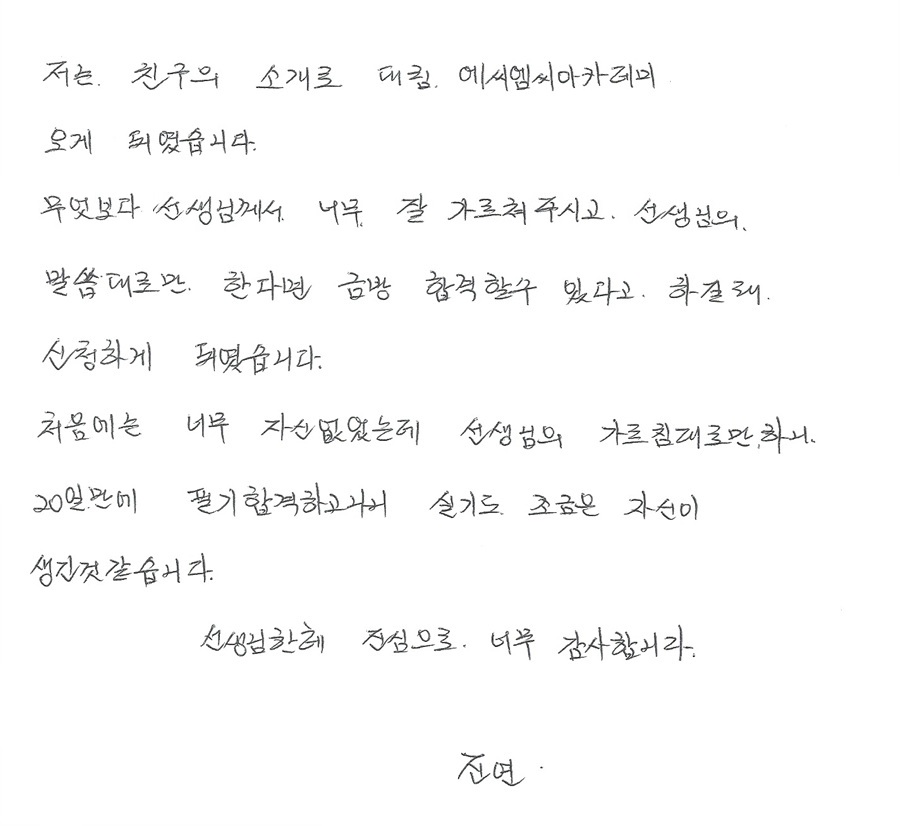 저는. 친구의 소개로 대림. 에씨엠씨아카데미
오게 되였습니다.
무엇보다 선생님께서 너무 잘 가르쳐주시고. 선생님의.
말씀대로만. 한다면 금방 합격할수 있다고. 하길래.
신청하게 되였습니다.
처음에는 너무 자신없었는데 선생님의 가르침대로만.하니.
20일만에 필기합격하고나니 실기도. 조금은 자신이
생긴것같습니다.
선생님한테 진심으로. 너무 감사합니다.
진연.